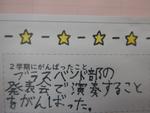 2学期にがんばったこと
ブラスバンド部の
発表会で演奏すること
をがんばった。